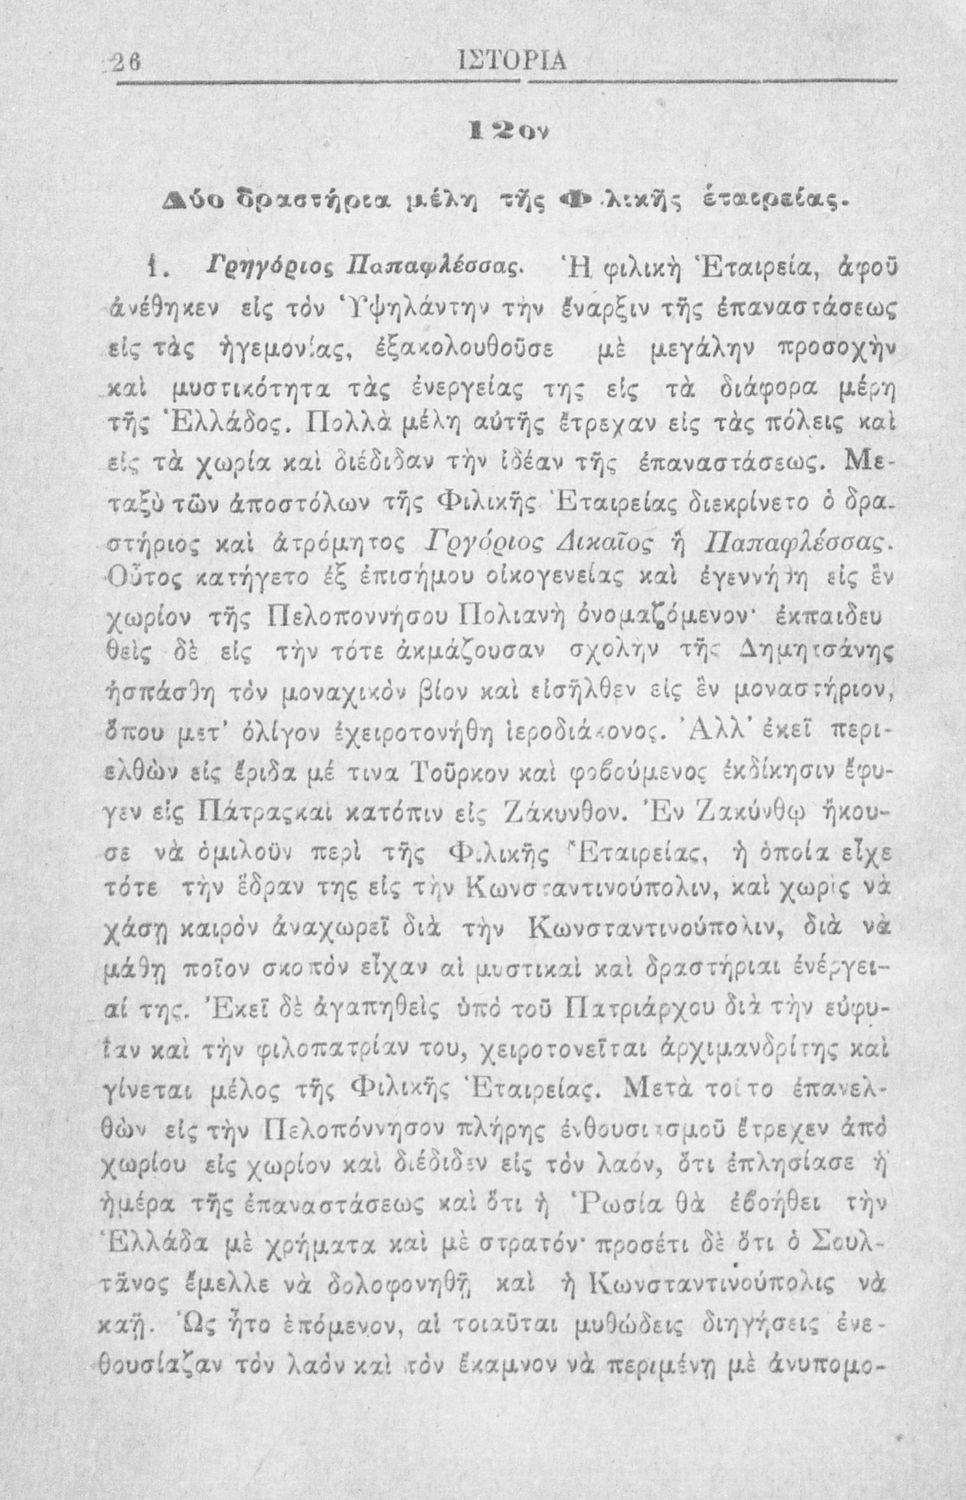 26 ΙΣΤΟΡΙΑ
12ον
Δύο δραστήρια μέλη τῆς Φ λικῆς ἑταιρείας.
1. Γρηγόριος Παπαφλέσσας. Ἡ φιλικὴ Ἑταιρεία, ἀφοῦ
ἀνέθηκεν εἰς τὸν Ὑψηλάντην τὴν ἔναρξιν τῆς ἐπαναστάσεως
εἰς τὰς ἡγεμονίας, ἐξακολουθοῦσε μὲ μεγάλην προσοχὴν
καὶ μυστικότητα τὰς ἐνεργείας της εἰς τὰ διάφορα μέρη
τῆς Ἑλλάδος. Πολλὰ μέλη αὐτῆς ἔτρεχαν εἰς τὰς πόλεις καὶ
εἰς τὰ χωρία καὶ διέδιδαν τὴν ἰδέαν τῆς ἐπαναστάσεως. Με-
ταξὺ τῶν ἀποστόλων τῆς Φιλικῆς Ἑταιρείας διεκρίνετο ὁ δρα-
στήριος καὶ ἀτρόμητος Γργόριος Δικαῖος ἢ Παπαφλέσσας.
Οὗτος κατήγετο ἐξ ἐπισήμου οἰκογενείας καὶ ἐγεννήθη εἰς ἓν
χωρίον τῆς Πελοποννήσου Πολιανὴ ὀνομαζόμενον· ἐκπαιδευ
θεὶς δὲ εἰς τὴν τότε ἀκμάζουσαν σχολὴν τῆς Δημητσάνης
ἠσπάσθη τὸν μοναχικὸν βίον καὶ εἰσῆλθεν εἰς ἓν μοναστήριον,
ὅπου μετ' ὀλίγον ἐχειροτονήθη ἱεροδιάκονος. Ἀλλ' ἐκεῖ περι-
ελθὼν εἰς ἔριδα μέ τινα Τοῦρκον καὶ φοβούμενος ἐκδίκησιν ἔφυ-
γεν εἰς Πάτραςκαὶ κατόπιν εἰς Ζάκυνθον. Ἐν Ζακύνθῳ ἤκου-
σε νὰ ὁμιλοῦν περὶ τῆς Φιλικῆς Ἑταιρείας, ἡ ὁποία εἶχε
τότε τὴν ἕδραν της εἰς τὴν Κωνσταντινούπολιν, καὶ χωρὶς νὰ
χάσῃ καιρὸν ἀναχωρεῖ διὰ τὴν Κωνσταντινούπολιν, διὰ νὰ
μάθῃ ποῖον σκοπὸν εἶχαν αἱ μυστικαὶ καὶ δραστήριαι ἐνέργει-
αί της. Ἐκεῖ δὲ ἀγαπηθεὶς ὑπό τοῦ Πατριάρχου διὰ τὴν εὐφυ-
ΐαν καὶ τὴν φιλοπατρίαν του, χειροτονεῖται ἀρχιμανδρίτης καὶ
γίνεται μέλος τῆς Φιλικῆς Ἑταιρείας. Μετὰ τοῦτο ἐπανελ-
θὼν εἰς τὴν Πελοπόννησον πλήρης ἐνθουσιασμοῦ ἔτρεχεν ἀπὸ
χωρίου εἰς χωρίον καὶ διέδιδεν εἰς τὸν λαόν, ὅτι ἐπλησίασε ἡ
ἡμέρα τῆς ἐπαναστάσεως καὶ ὅτι ἡ Ῥωσία θὰ ἐβοήθει τὴν
Ἑλλάδα μὲ χρήματα καὶ μὲ στρατόν· προσέτι δὲ ὅτι ὁ Σουλ-
τᾶνος ἔμελλε νὰ δολοφονηθῇ καὶ ἡ Κωνσταντινούπολις νὰ
καῇ. Ὡς ἦτο ἑπόμενον, αἱ τοιαῦται μυθώδεις διηγήσεις ἐνε-
θουσίαζαν τὸν λαὸν καὶ τὸν ἔκαμνον νὰ περιμένῃ μὲ ἀνυπομο-